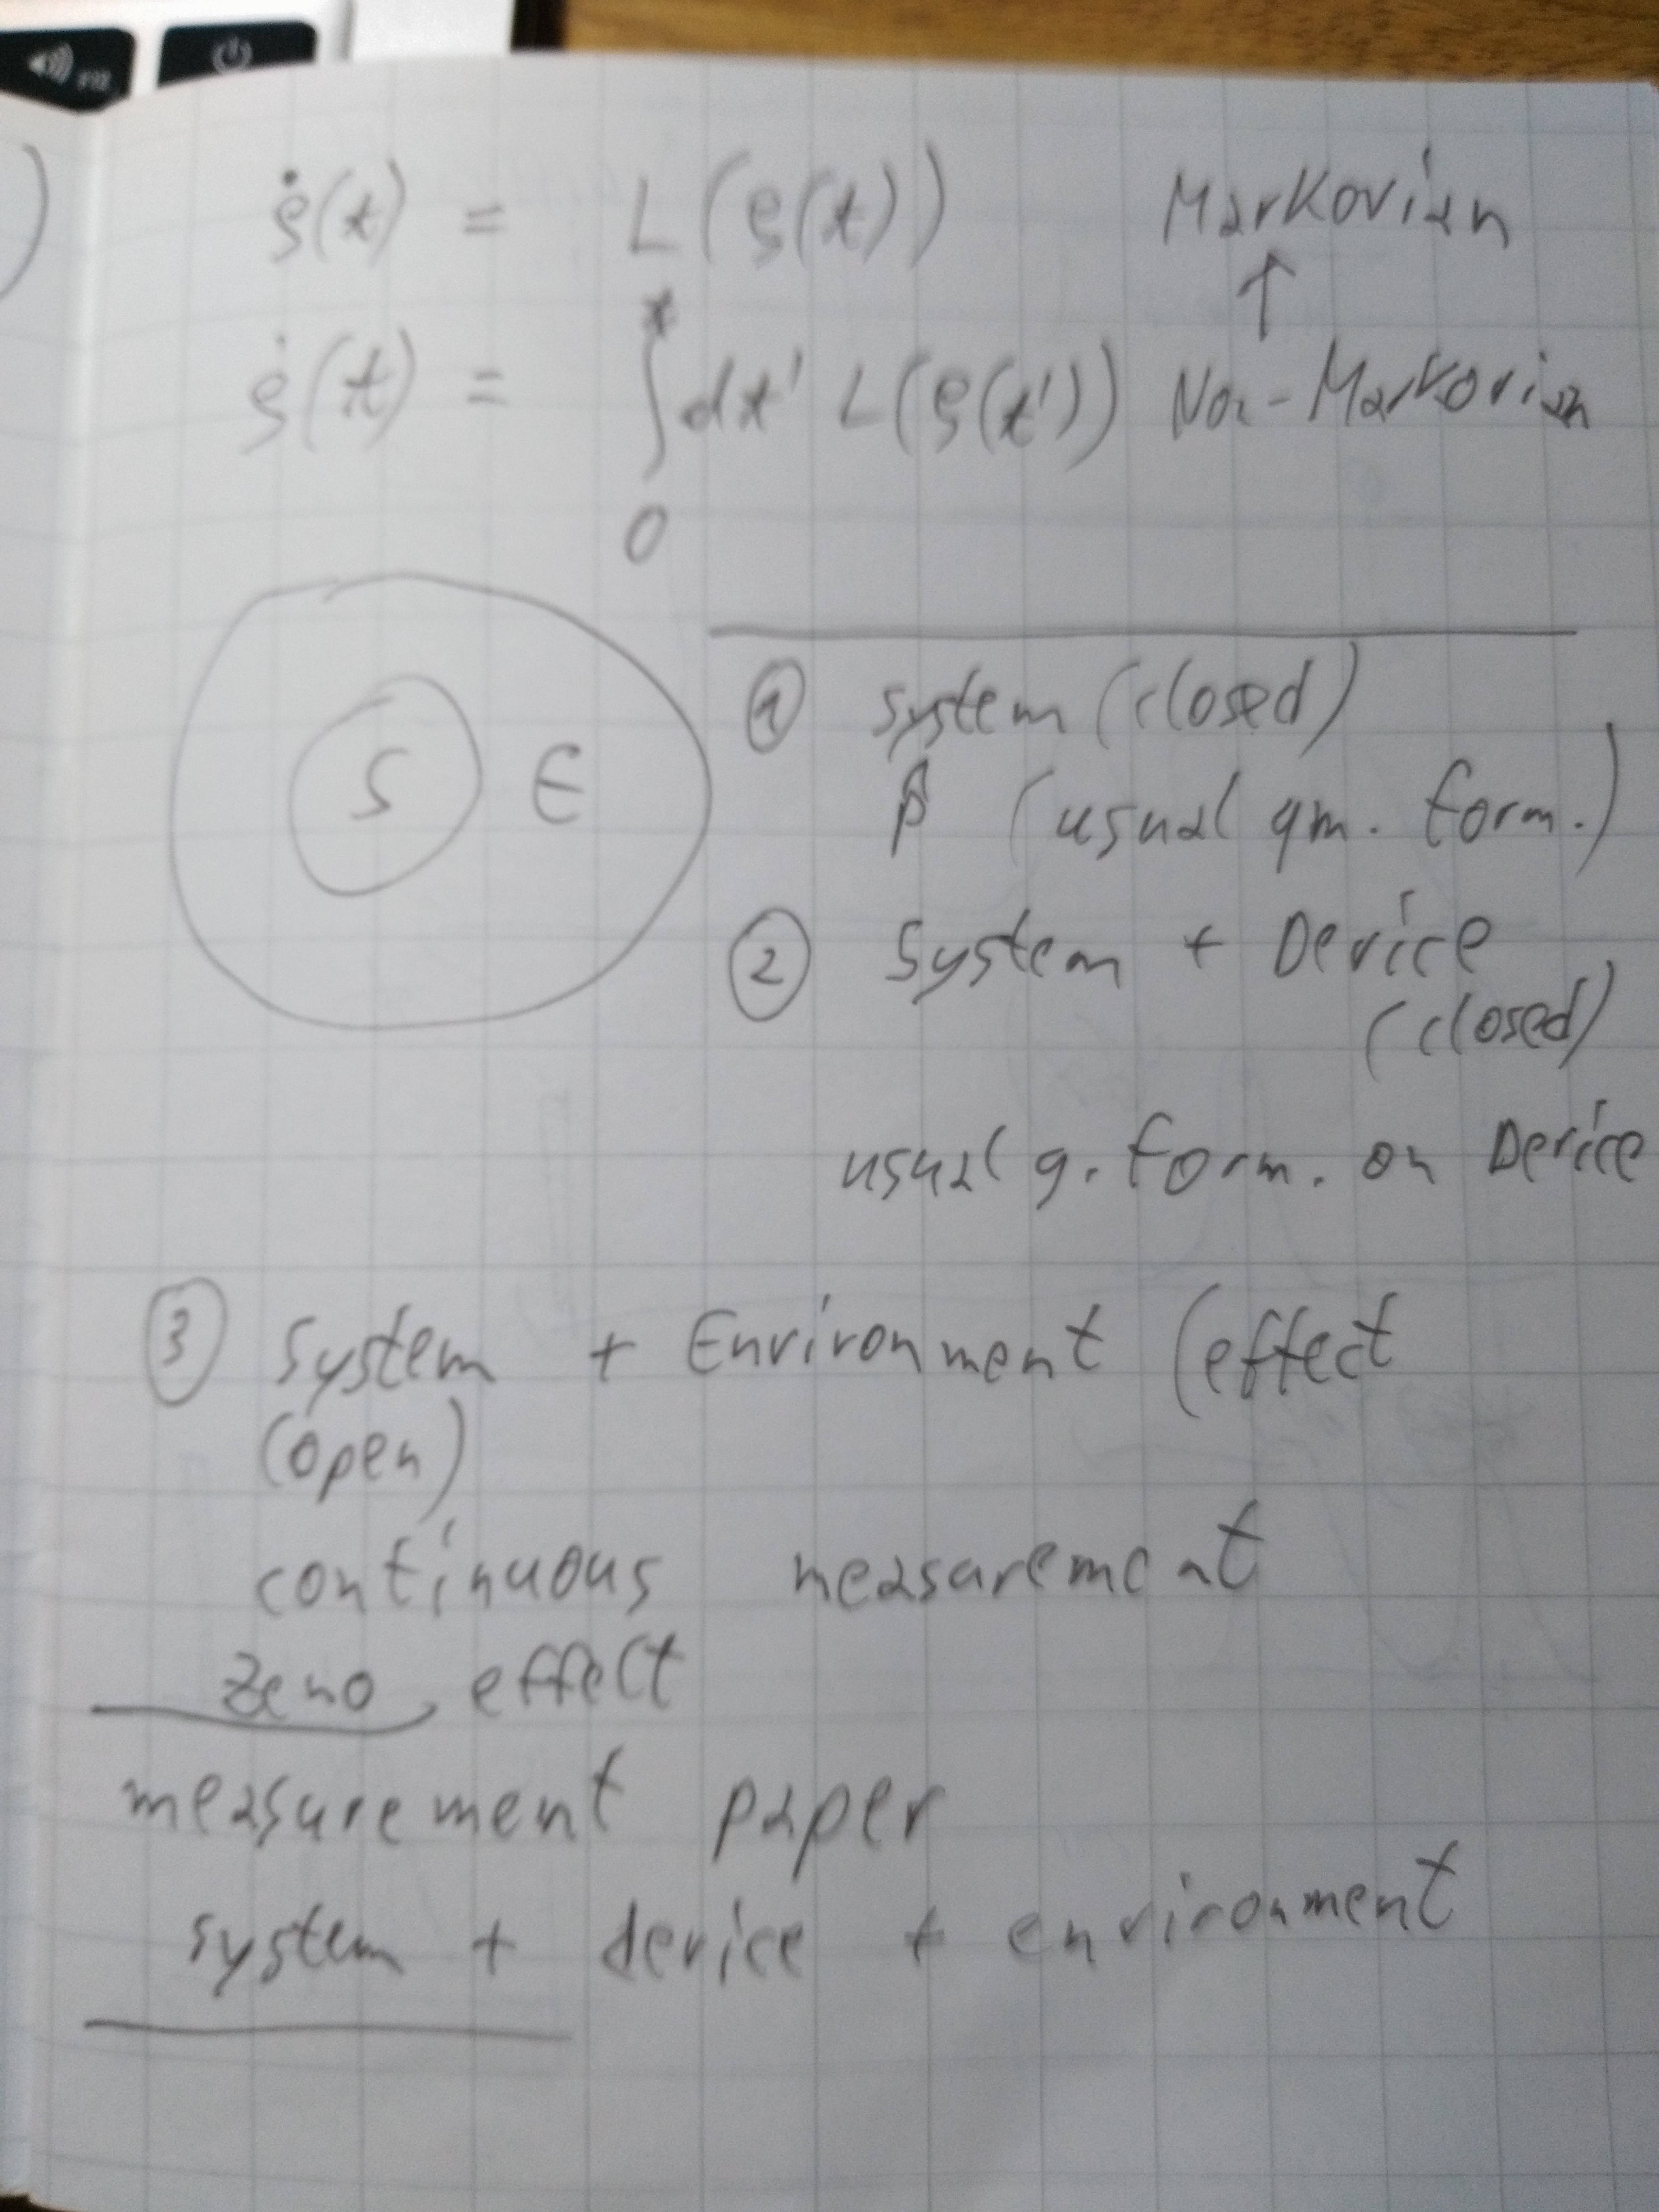 F12
ρ̇(t) = L(ρ(t)) Markovian
↑
ρ̇(t) = ∫₀ᵗ dt' L(ρ(t')) Non-Markovian
S E
① system (closed)
p̂ (usual qm. form.)
② System + Device
(closed)
usual q. form. on Device
③ System + Environment (effect
(open)
continuous measurement
Zeno effect
measurement paper
system + device + environment